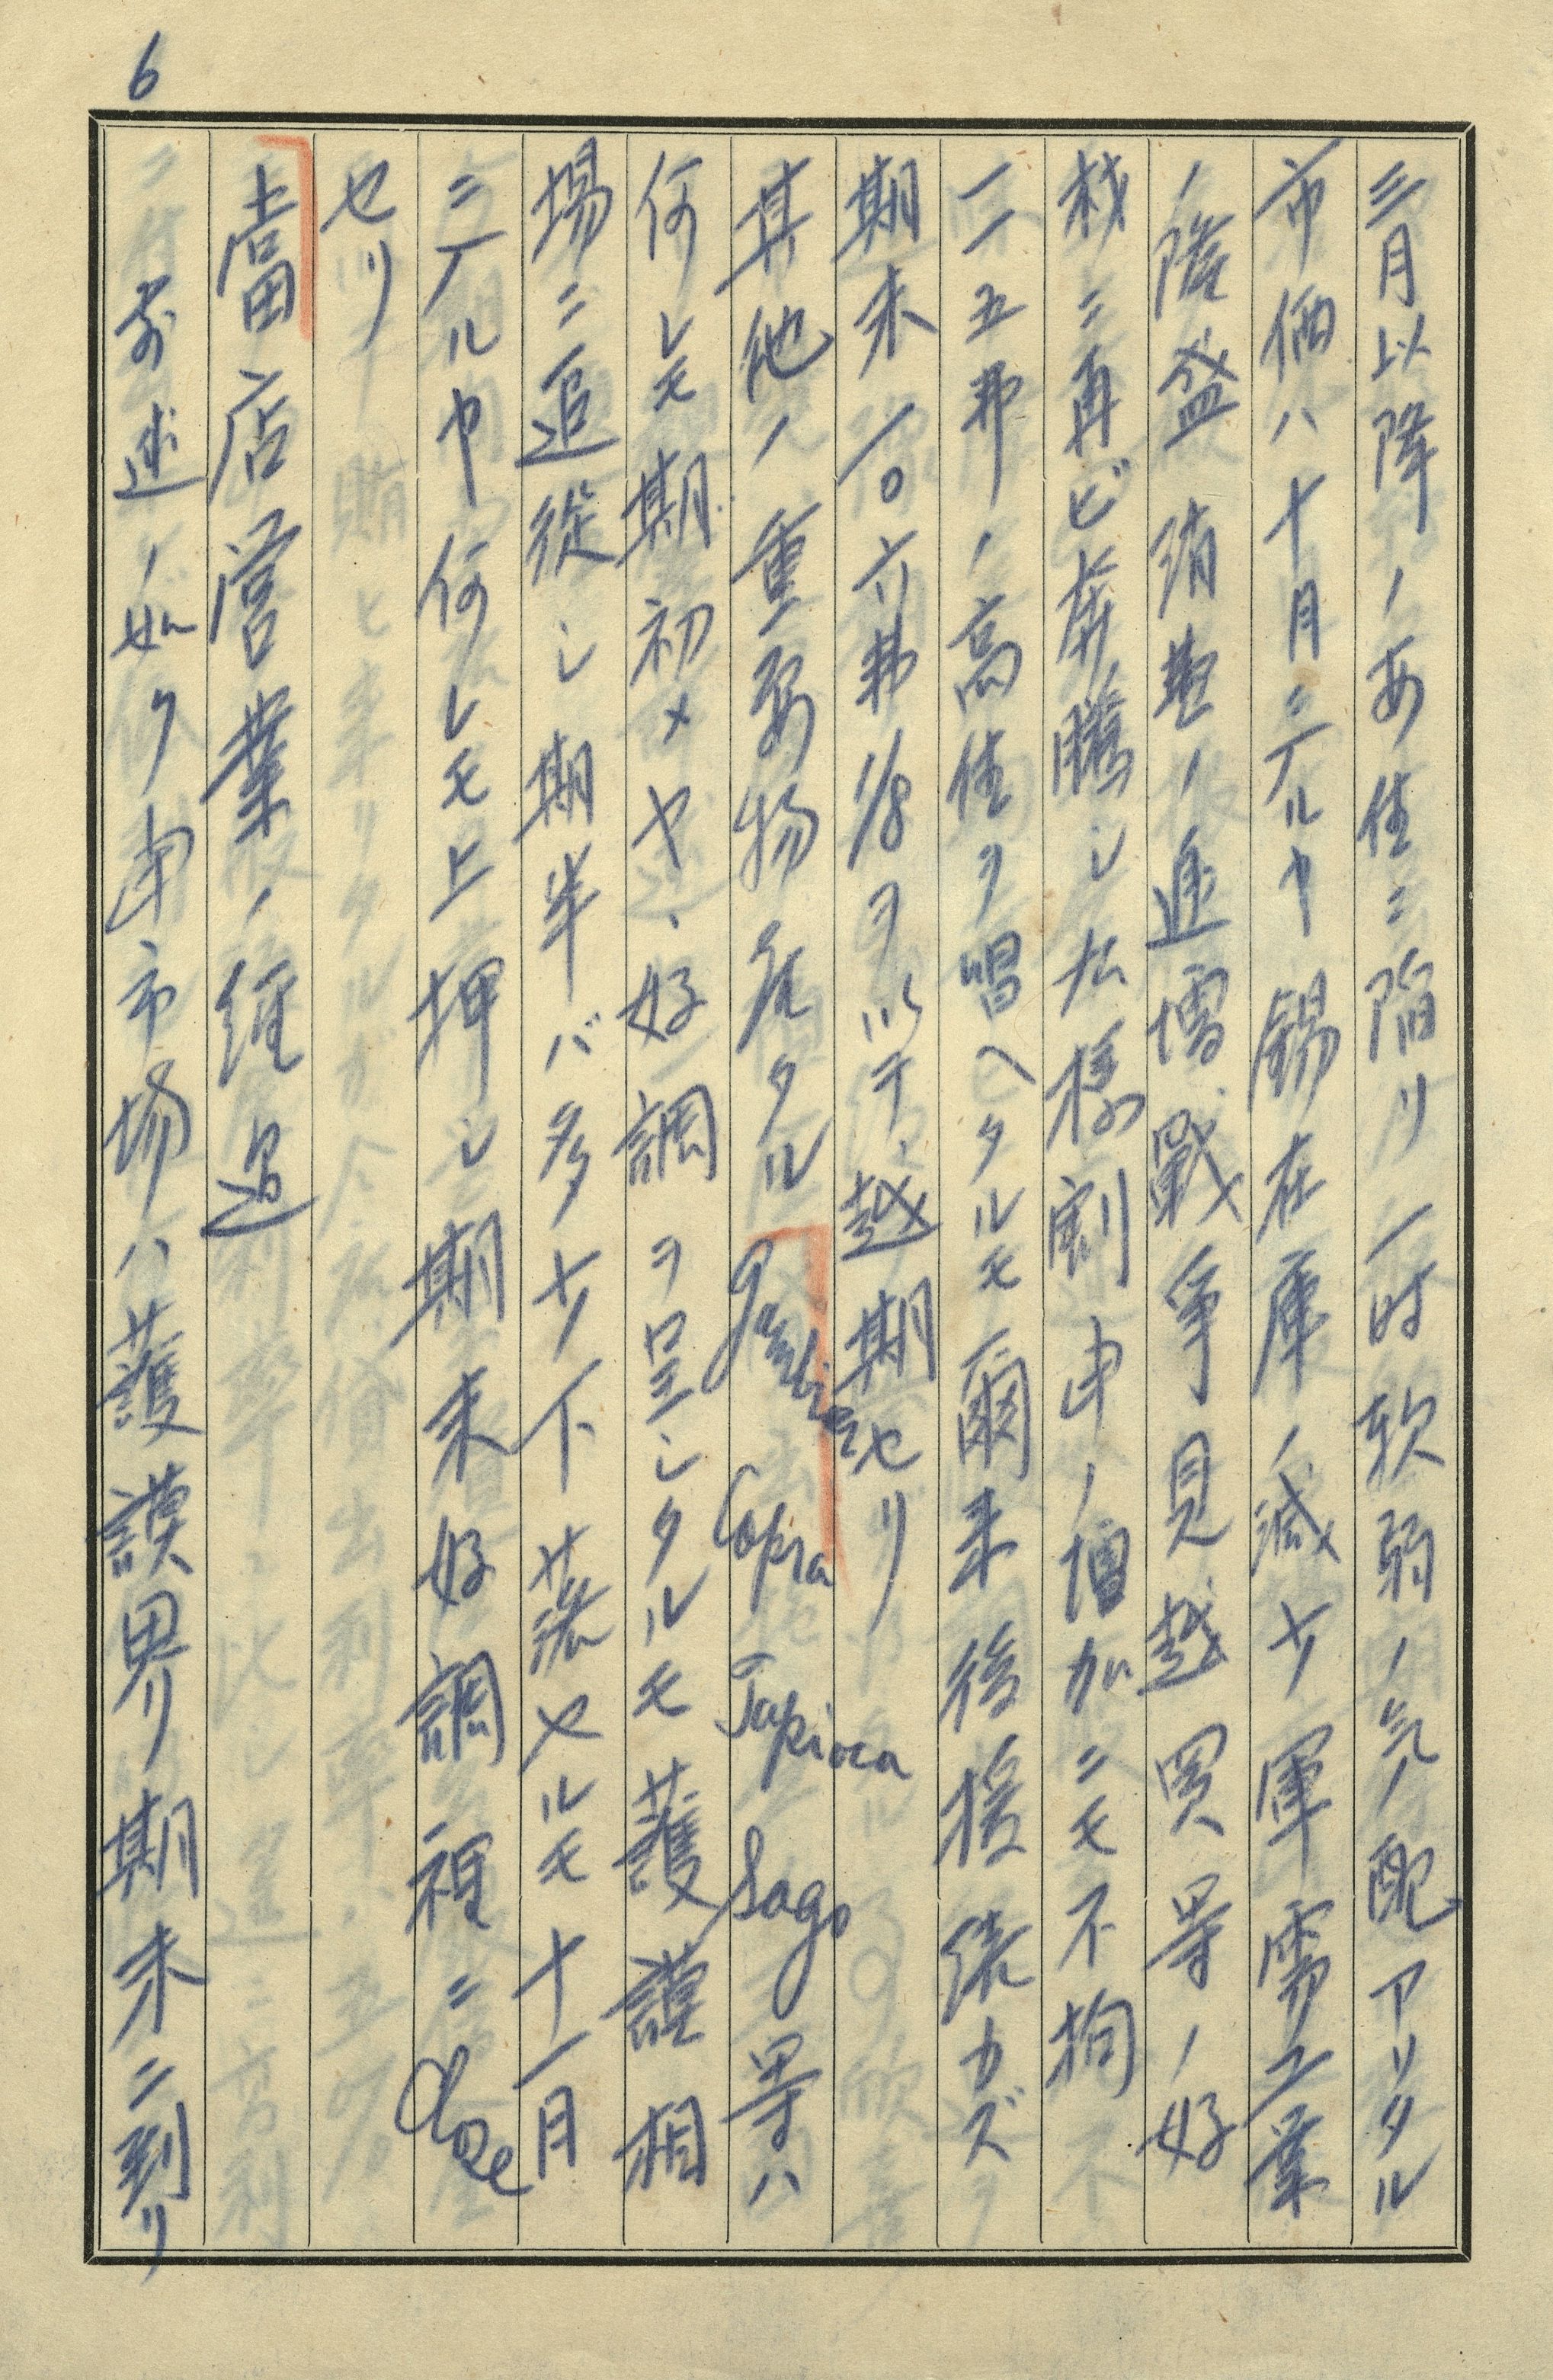 6
三月以降ノ安住ニ陥リ一時軟弱ノ気配アリタル
市価ハ十月ニ入ルヤ錫在庫ノ減少軍需工業
ノ隆盛消費ノ逓増戦争見越買等ノ好
材ニ再ビ奔騰シ公称割申ノ増加ニモ不拘
一一五弗ノ高住ヲ唱ヘタルモ爾来後援続カズ
期末一〇六弗1/8ヲ以テ越期セリ
其他ノ重要物産タルGambier Copra Tapioca Sago等ハ
何レモ期初メヤヽ好調ヲ呈シタルモ護謨相
場ニ追従シ期半バ多少下落セルモ十一月
ニ入ルヤ何レモ上押シ期末好調裡ニClose
セリ
当店営業ノ経過
前述ノ如ク当市場ハ護謨界リ期末ニ到リ